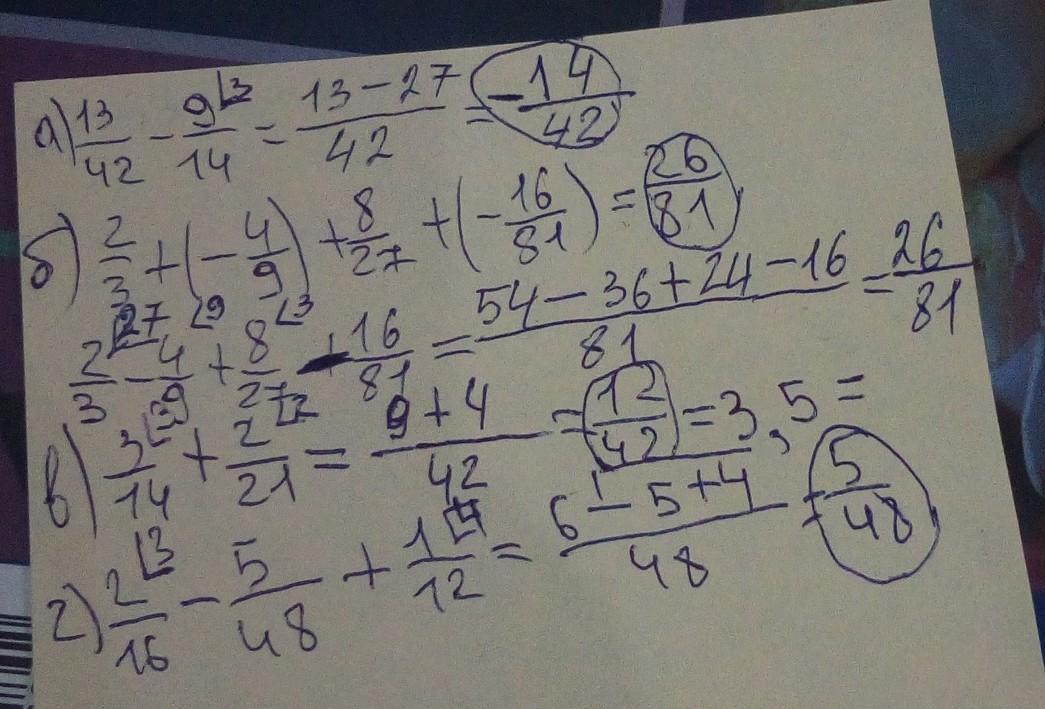 а) 13/42 - 9⌊3/14 = 13-27/42 = -14/42
б) 2/3 + (-4/9) + 8/27 + (-16/81) = 26/81
2⌊27/3 - 4⌊9/9 + 8⌊3/27 - 16/81 = 54-36+24-16/81 = 26/81
в) 3⌊3/14 + 2⌊2/21 = 9+4/42 = 12/42 = 3,5 =
г) 2⌊3/16 - 5/48 + 1⌊4/12 = 6-5+4/48 = 5/48